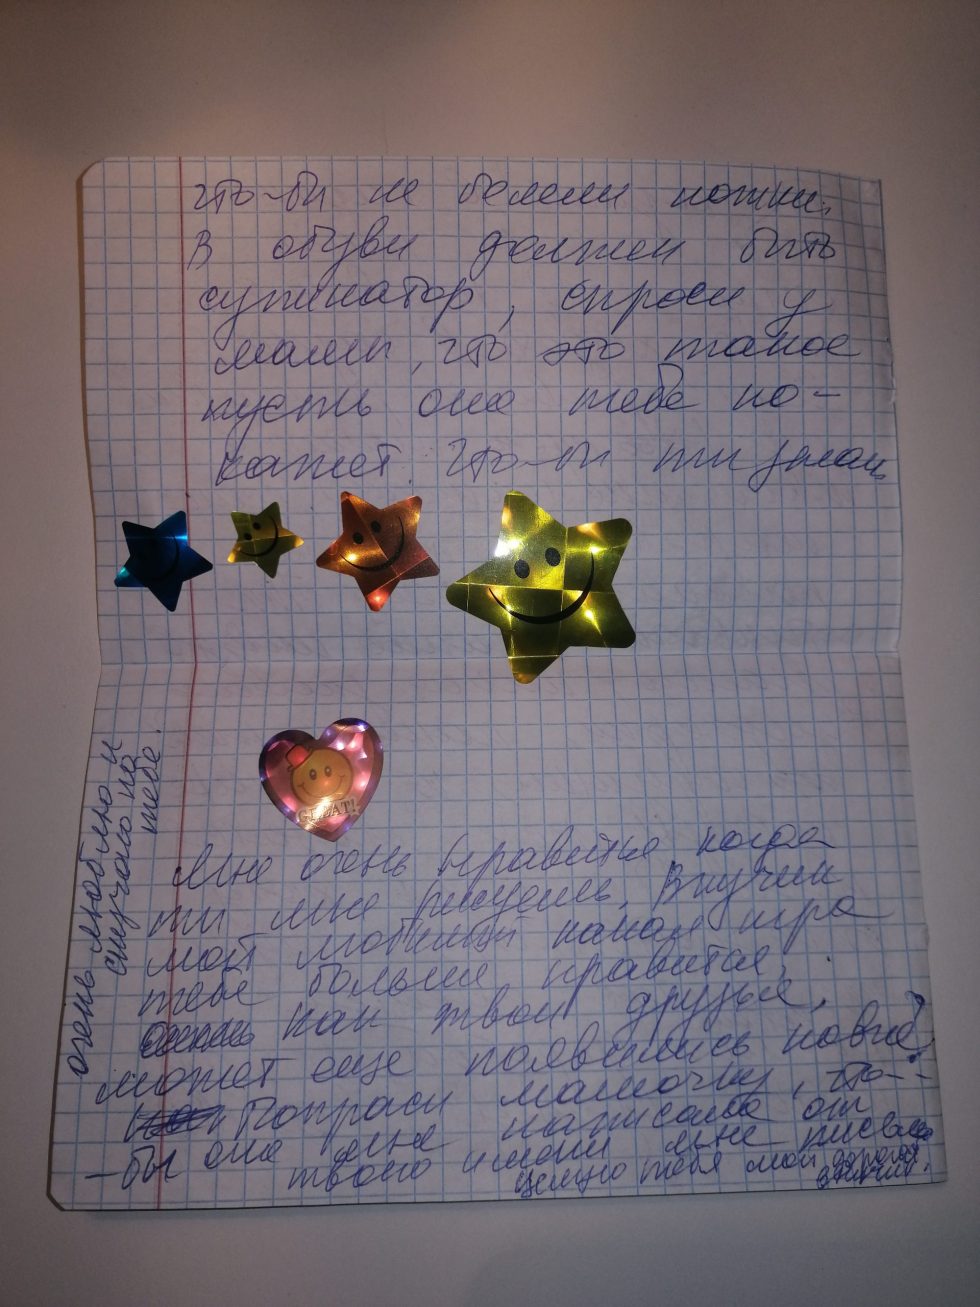 что-бы не болели ножки.
В обуви должен быть
супинатор, спроси у
мамы, что это такое
пусть она тебе по-
кажет. Что-бы ты знал
GREAT!
Мне очень нравится когда
ты мне рисуешь. Внучек
мой любимый какая игра
тебе больше нравится,
как твои друзья,
может еще появились новые?
Попроси мамочку, что-
-бы она мне написала от
твоего имени мне письмо
целую тебя мой дорогой
внучек.
очень люблю и
скучаю по
тебе.